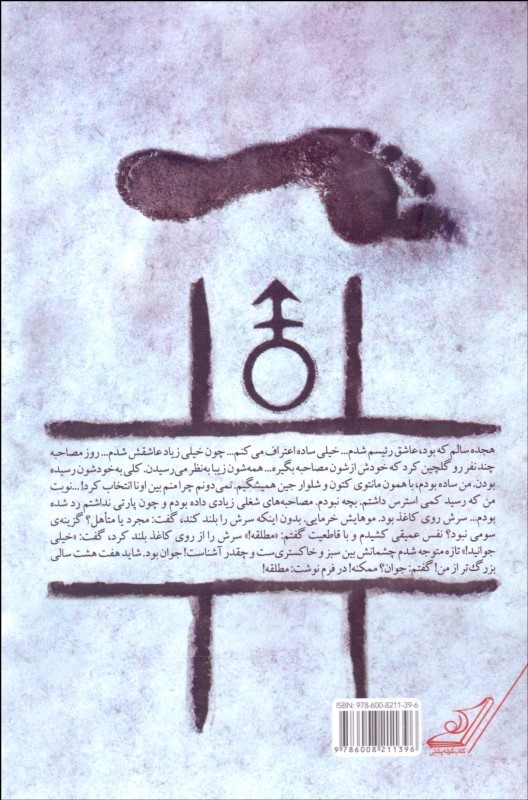 هجده سالم که بود، عاشق رئیسم شدم... خیلی ساده اعتراف می کنم... چون خیلی زیاد عاشقش شدم... روز مصاحبه
چند نفر رو گلچین کرد که خودش ازشون مصاحبه بگیره... همه‌شون زیبا به‌نظر می‌رسیدن. کلی به‌خودشون رسیده
بودن. من ساده بودم، با همون مانتوی کتون و شلوار جین همیشگیم. نمی‌دونم چرا منم بین اونا انتخاب کرد!... نوبت
من که رسید کمی استرس داشتم. بچه نبودم. مصاحبه‌های شغلی زیادی داده بودم و چون پارتی نداشتم رد شده
بودم... سرش روی کاغذ بود. موهایش خرمایی. بدون اینکه سرش را بلند کند، گفت: مجرد یا متأهل؟ گزینه‌ی
سومی نبود؟ نفس عمیقی کشیدم و با قاطعیت گفتم: «مطلقه!» سرش را از روی کاغذ بلند کرد، گفت: «خیلی
جوانید!» تازه متوجه شدم چشمانش بین سبز و خاکستری‌ست و چقدر آشناست! جوان بود. شاید هفت هشت سالی
بزرگ‌تر از من! گفتم: جوان؟ ممکنه! در فرم نوشت: مطلقه!
ISBN: 978-600-8211-39-6
9 786008 211396